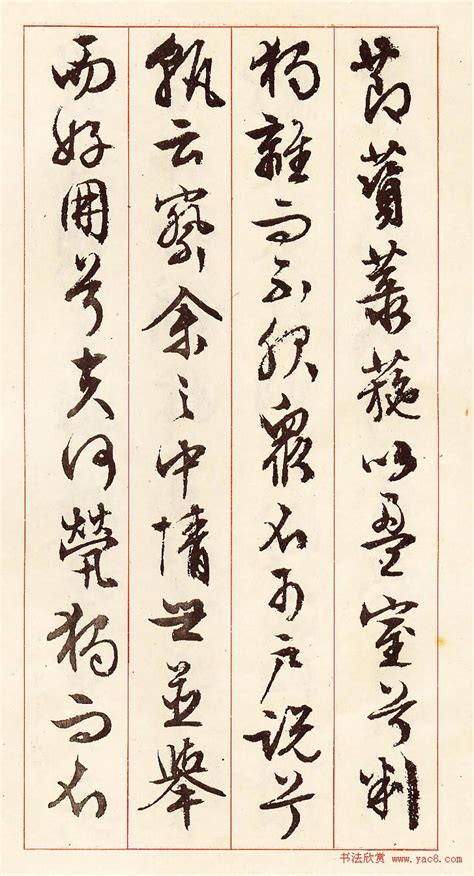 節薋菉葹以盈室兮判
獨離而不服衆不可户説兮
孰云察余之中情世並舉
而好朋兮夫何煢獨而不
书法欣赏 www.yac8.com